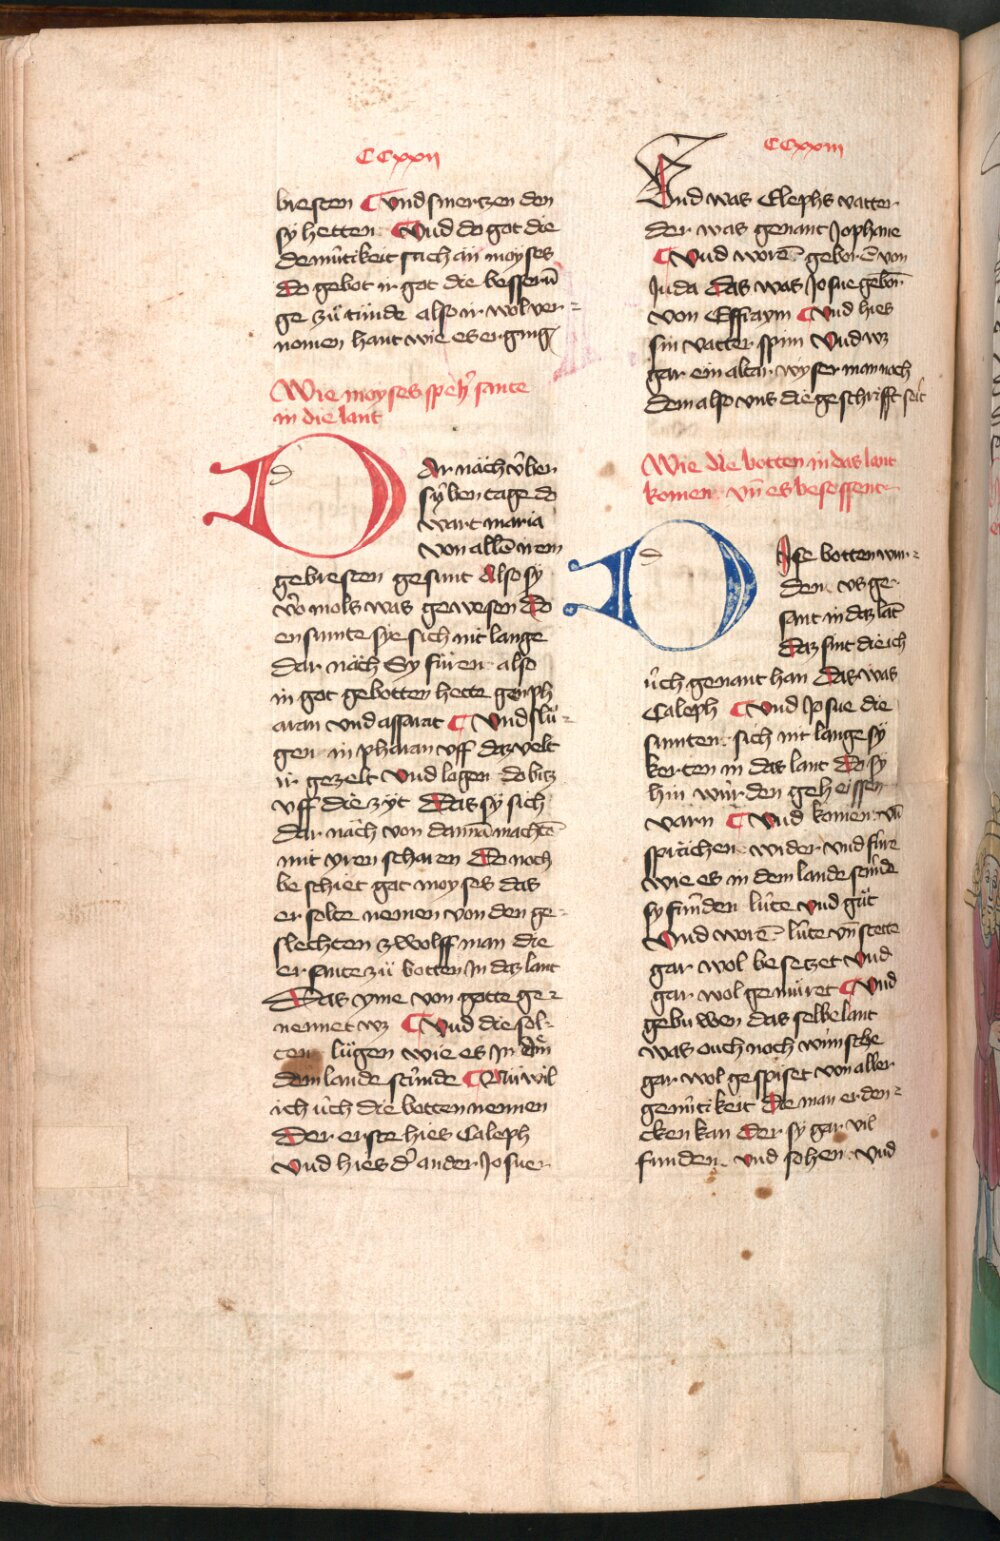 CCxxii
bresten Vnd smerczen den
sy hetten Vnd do got die
demůtikeit sach an moyses
do gebot ir got die besserū
ge zů tůnde also ir wol ver-
nomen hant wie es erging
Wie moyses speh' sante
in die lant
DAr nāch v̂ber
sẏben tage do
wart maria
von allē irem
gebresten gesunt Also sy
vo mols was gewesen Do
ensumte sye sich nit lange
dar nāch Sy fůren also
in got gebotten hette
aran vnd assarat Vnd slů-
gen in pharan vff daz velt
ir gezelt Vnd lagen do bitz
vff die zyt Das sy sich
dar nāch von dannā machtē
mit yren scharen Do noch
beschiet got moyses das
er solte nemen von den ge-
slechten zwolff man die
er sante zů botten In daz lant
Das yme von gotte ge-
nennet wz Vnd die sol-
ten lůgen wie es In
dem lande stůnde Nu wil
ich ůch die botten nennen
Der erste hies Caleph
Vnd hies d' ander Josue
CCxxiii
Vnd was Clephs vatter
der was genant Jophane
Vnd worē geborē von
Juda Das was Josue geborn
von Effraym Vnd hies
sin vatter spim Vnd wz
gar ein altar wyser man noch
dem also vns die geschrifft seit
Wie die botten in das lant
komen vn̄ es besossent
DIse botten wur-
den vs ge-
sant in daz lāt
Daz sint die ich
ůch genant han Das was
Caleph Vnd Josue die
sumten sich nit lange sy
kerten in das lant Do sy
hin wurden geheissen
varn Vnd komen vn̄
sprāchen wider vnd fůre
wie es in dem lande stůnde
sy funden lůte vnd gůt
Vnd worē lůte vn̄ stette
gar wol besetzet Vnd
gar wol gemůret Vnd
gebuwen das selbe lant
was ouch noch wunsche
gar wol gespiset von aller
gemůtikeit Die man erden-
cken kan Der sy gar vil
funden Vnd sohen Vnd